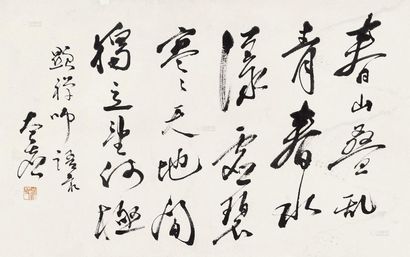 春山叠乱
青春水
漾虚碧
寥々天地间
独立望何极
显禅师语录